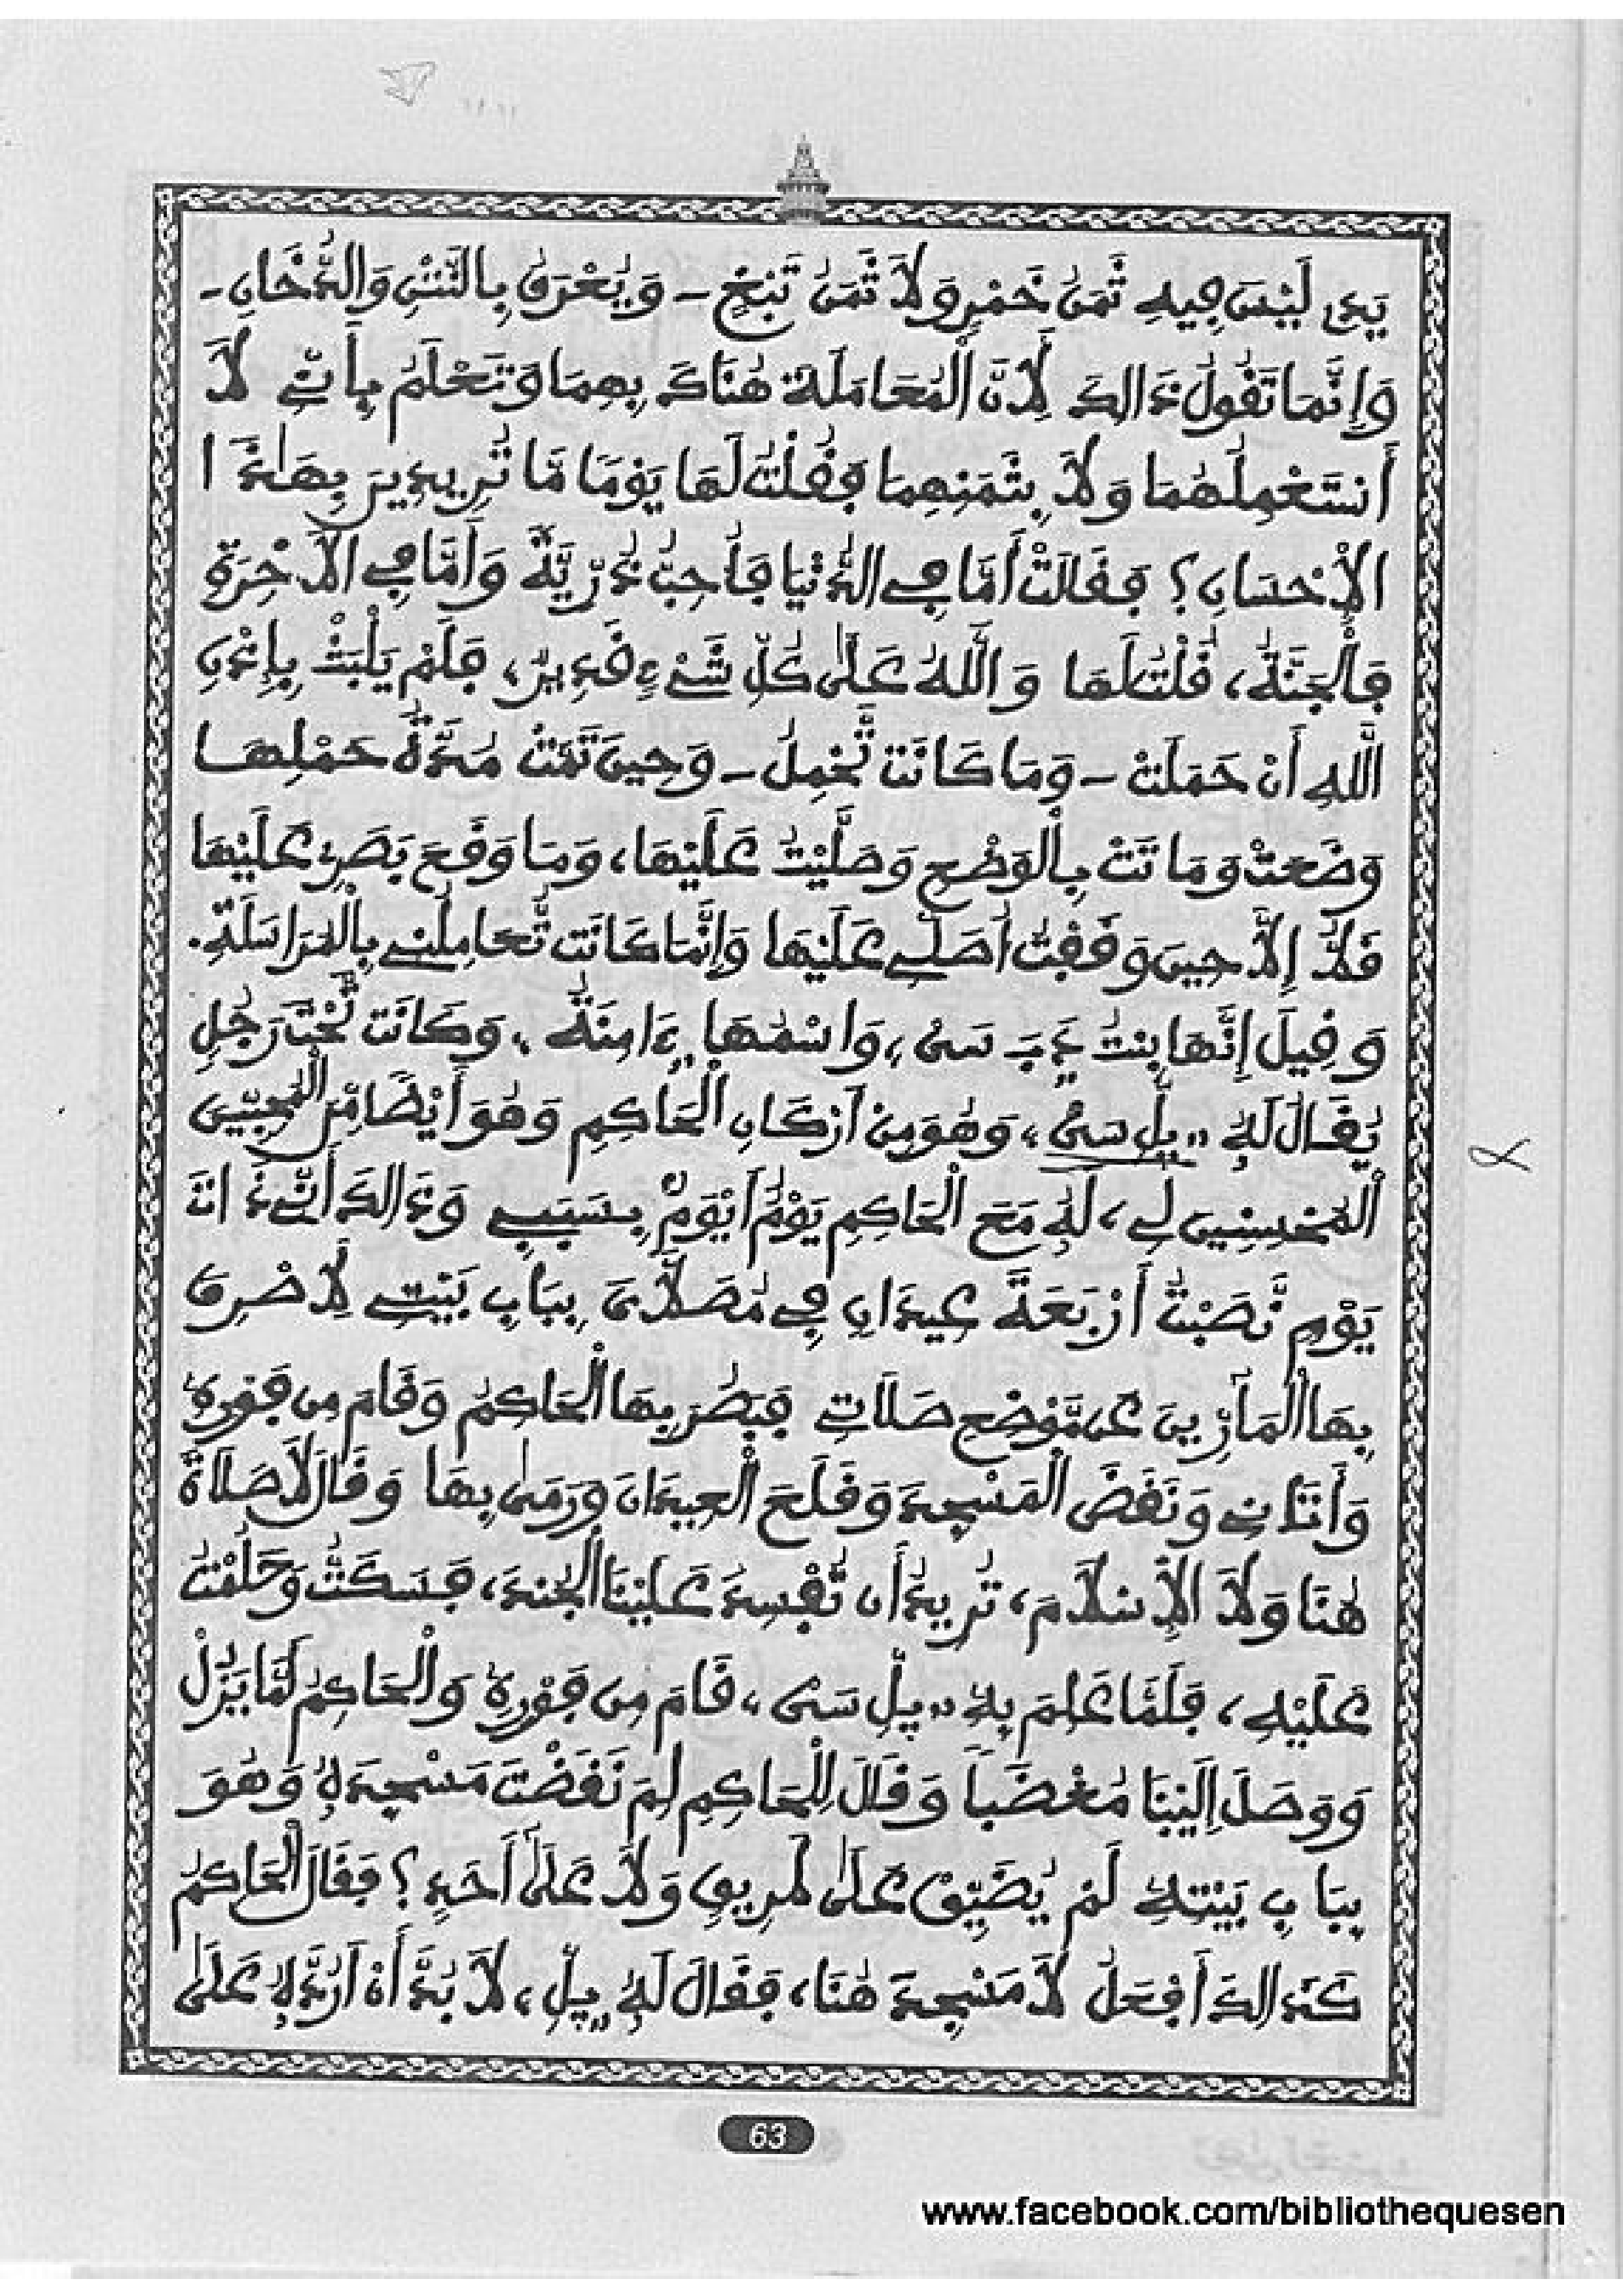 يَدِى لَيْسَ فِيهِ ثَمَنُ خَمْرٍ وَلَا ثَمَنُ تَبْغٍ - وَيُعْرَفُ بِالنَّتْنِ وَالدُّخَانِ -
وَإِنَّمَا تَقُولُ ذَالِكَ لِأَنَّ الْمُعَامَلَةَ هُنَاكَ بِهِمَا وَتَعْلَمُ بِأَنِّي لَا
أَسْتَعْمِلُهُمَا وَلَا بِثَمَنِهِمَا فَقُلْتُ لَهَا يَوْمًا مَّا تُرِيدِينَ بِهَـٰذَا
الْإِحْسَانِ؟ فَقَالَتْ أَمَّا فِي الدُّنْيَا فَأُحِبُّ ذُرِّيَّةً وَأَمَّا فِي الْآخِرَةِ
فَالْجَنَّةُ، قُلْتُ لَهَا وَاللَّهُ عَلَىٰ كُلِّ شَيْءٍ قَدِيرٌ، فَلَمْ يَلْبَثْ بِإِذْنِ
اللَّهِ أَنْ حَمَلَتْ - وَمَا كَانَتْ تَّحْمِلُ - وَحِينَ تَمَّتْ مُدَّةُ حَمْلِهَا
وَضَعَتْ وَمَاتَتْ بِالْوَضْعِ وَصَلَّيْتُ عَلَيْهَا، وَمَا وَقَعَ بَصَرِي عَلَيْهَا
قَطُّ إِلَّا حِينَ وَقَفْتُ أُصَلِّي عَلَيْهَا وَإِنَّمَا كَانَت تُّعَامِلُنِي بِالْمُرَاسَلَةِ.
وَقِيلَ إِنَّهَا بِنْتُ سَىْ، وَاسْمُهَا ءَامِنَةُ، وَكَانَت تَّحْتَ رَجُلٍ
يُقَالُ لَهُ "بِلِّ سَىْ"، وَهُوَ مِنْ أَرْكَانِ الْحَاكِمِ وَهُوَ أَيْضًا مِّنَ الْمُحِبِّينَ
الْمُحْسِنِينَ لِي، لَهُ مَعَ الْحَاكِمِ يَوْمٌ أَيْوَمُ بِسَبَبِي وَذَالِكَ أَنِّي ذَاتَ
يَوْمٍ نَّصَبْتُ أَرْبَعَةَ عِيدَانٍ فِي مُصَلَّايَ بِبَابِ بَيْتِي لِأَصْرِفَ
بِهَا الْمَآرِّينَ عَن مَّوْضِعِ صَلَاتِي فَبَصُرَ بِهَا الْحَاكِمُ وَقَامَ مِن فَوْرِهِ
وَأَتَانِي وَنَفَضَ الْمَسْجِدَ وَقَلَعَ الْعِيدَانَ وَرَمَىٰ بِهَا وَقَالَ لَا صَلَاةَ
هُنَا وَلَا الْإِسْلَامَ، تُرِيدُ أَن تُفْسِدَ عَلَيْنَا الْجُندَ، فَسَكَتُّ وَحَلُمْتُ
عَلَيْهِ، فَلَمَّا عَلِمَ بِهِ "بِلِّ سَىْ"، قَامَ مِن فَوْرِهِ وَالْحَاكِمُ لَمَّا يَزُلْ
وَوَصَلَ إِلَيْنَا مُغْضَبًا وَقَالَ لِلْحَاكِمِ لِمَ نَفَضْتَ مَسْجِدَهُ وَهُوَ
بِبَابِ بَيْتِهِ لَمْ يُضَيِّقْ عَلَىٰ طَرِيقٍ وَلَا عَلَىٰ أَحَدٍ؟ فَقَالَ الْحَاكِمُ
كَذَالِكَ أَفْعَلُ لَا مَسْجِدَ هُنَا، فَقَالَ لَهُ "بِلِّ"، لَا بُدَّ أَنْ أَرُدَّهُ عَلَىٰ
63
www.facebook.com/bibliothequesen